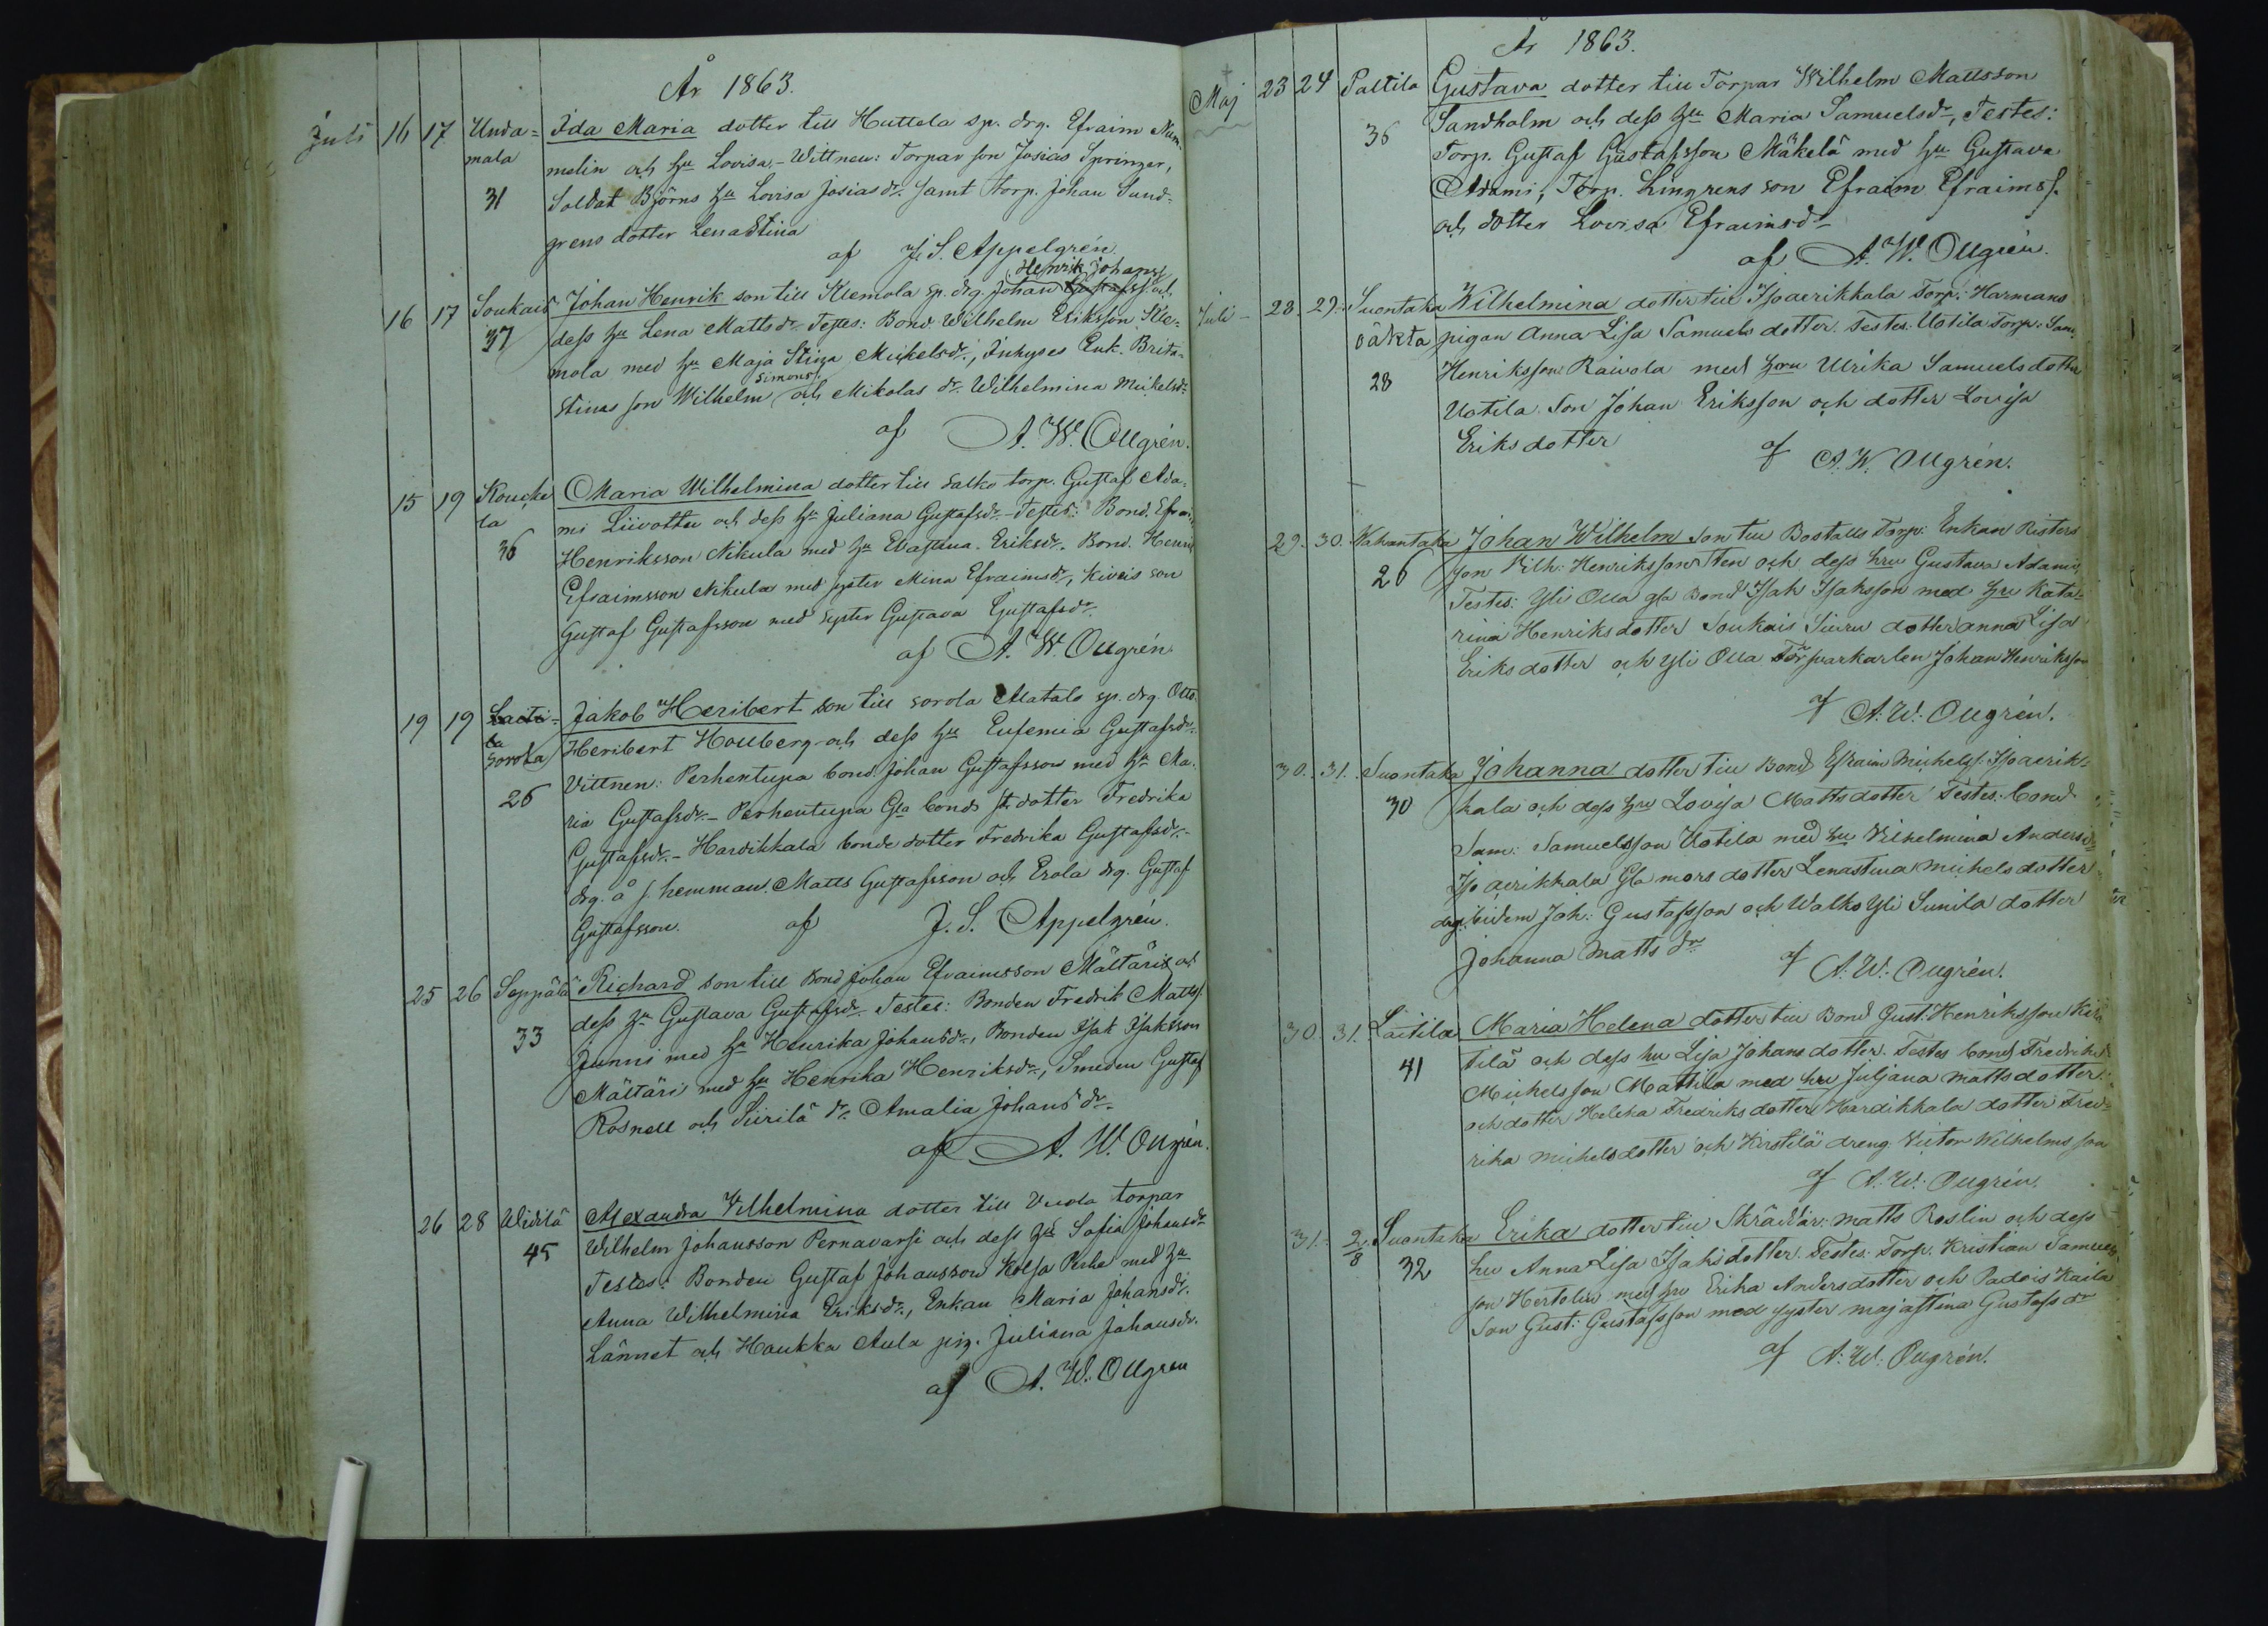 År 1863.
Juli 16 17 Unda= Ida Maria dotter till Huttala sp. drg. Efraim Num=
mala melin och hu Lovisa,- Wittnen: Torpar son Josias Springer,
31 Soldat Björns hu Lovisa Josiasdr. samt torp. Johan Sund=
grens dotter Lena Stina
af J. S. Appelgrén.
Henrik Johanss.
16 17 Soukais Johan Henrik son till Klemola sp. drg. Johan Gustafss. och
37 dess hu Lena Mattsdr. Testes: Bond. Wilhelm Eriksson Kle=
mola med hu Maja Stina Michelsdr., Enk. Brita
Simonss.
Stinas son Wilhelm och Mikolas dr. Wilhelmina Mickelsdr.
af A. W. Ollgrén.
15 19 Koucka Maria Wilhelmina dotter till Salko torp. Gustaf Ada=
la mi Liivottu och dess hu Juliana Gustafsdr.- Testes: Bond. Efraim
36 Henriksson Nikula med hu Evastina Eriksdr. Bond. Henrik
Efraimsson Nikula med syster Mina Efraimsdr., Kiveis son
Gustaf Gustafsson med syster Gustava Gustafsdr.
af A. W. Ollgrén.
19 19 Laiti= Jakob Heribert son till Sorola Alatalo sp. drg. Otto
la Heribert Hollberg och dess hu Eufemia Gustafsdr.
Sorola Vittnen: Perhentupa bond. Johan Gustafsson med hu Ma=
26 ria Gustafsdr.- Perhentupa Gla bonds st. dotter Fredrika
Gustafsdr.- Hardikkala bonde dotter Fredrika Gustafsdr.-
drg. å s. hemman Matts Gustafsson och Erola drg. Gustaf
Gustafsson. af J. S. Appelgrén.
25 26 Seppälä Richard son till Bond Johan Efraimsson Mältäri och
dess hu Gustava Gustafsdr. Testes: Bonden Fredrik Mattss.
33 Junni med hu Henrika Johansdr., Bonden Isak Isaksson
Mältäri med hu Henrika Henriksdr., Smeden Gustaf
Rosnell och Siirilä dr. Amalia Johansdr.
af A. W. Ollgrén.
26 28 Widilä Alexandra Vilhelmina dotter till Uuola torpar
45 Wilhelm Johansson Pernavarsi och dess hu Sofia Johansdr.
Testes: Bonden Gustaf Johansson Kolsa Perhe med hu
Anna Wilhelmina Eriksdr., Enkan Maria Johansdr.
Lännet och Haukka Aula pig. Juliana Johansdr.
af A. W. Ollgren
År 1863.
Maj 23 24 Paltila Gustava dotter till Torpar Wilhelm Mattsson
36 Sandholm och dess hu Maria Samuelsdr., Testes:
Torp. Gustaf Gustafsson Mäkelä med hu Gustava
Adami, Torp. Lingrens son Efraim Efraimss.
och dotter Lovisa Efraimsdr.
af A. W. Ollgrén.
Juli - 28. 29. Suontaka Wilhelmina dotter till Isoaerikkala Torp: Harmans
oäkta pigan Anna Lisa Samuels dotter. Testes: Uotila Torp: Sam:
28 Henriksson Raivola med hru Ulrika Samuelsdotter
Uotila Son Johan Eriksson och dotter Lovisa
Eriksdotter af A. W. Ollgrén.
29. 30. Kahantaka Johan Wilhelm Son till Boställs Torp: Enkan Risters
26 son Vilh: Henriksson Ten och dess hru Gustava Adami,
Testes: Yli Olla gla Bond Isak Isaksson med hru Kata=
rina Henriksdotter Soukais Siuru dotter Anna Lisa
Eriksdotter och Yli Olla Torparkarlen Johan Henriksson
af A. W. Ollgrén.
30. 31. Suontaka Johanna dotter till Bond Efraim Michelss. Isoaerik=
30 kala och dess hru Lovisa Mattsdotter Testes: Bond
Sam: Samuelsson Uotila med hu Vilhelmina Andersdr
Iso aerikkala Gla mors dotter Lenastina Michelsdotter
drg. ibidem Joh: Gustafsson och Walko Yli Sunila dotter
Johanna Matts dr af A. W. Ollgrén.
30. 31. Laitila Maria Helena dotter till Bond Gust: Henriksson Kirs
41 tilä och dess hu Lisa Johans dotter. Testes bond Fredrik
Michelsson Mattila med hru Juljana Mattsdotter
och dotter Helena Fredriksdotter Hardikkala dotter Fred=
rika Michelsdotter och Kirstilä dreng Victor Wilhelmsson
af A. W. Ollgrén.
31. 2/8 Suontaka Erika dotter till Skräddar. Matts Roslin och dess
32 hu Anna Lisa Isaksdotter. Testes: Torp. Kristian Samuels
son Hertolin med hru Erika Andersdotter och Padois Kaila
Son Gust: Gustafsson med syster Majastina Gustafs dr
af A. W. Ollgrén.